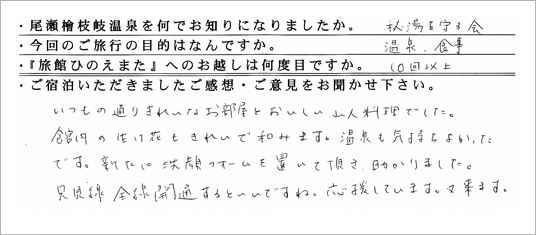 ・尾瀬檜枝岐温泉を何でお知りになりましたか。 秘湯を守る会
・今回のご旅行の目的はなんですか。 温泉、食事
・『旅館ひのえまた』へのお越しは何度目ですか。 10回以上
・ご宿泊いただきましたご感想・ご意見をお聞かせ下さい。
いつもの通りきれいなお部屋とおいしい山人料理でした。
館内の生け花もきれいで和みます。温泉も気持ちよかった
です。新たに洗顔フォームを置いて頂き、助かりました。
只見線 全線開通するといいですね。応援しています。又来ます。